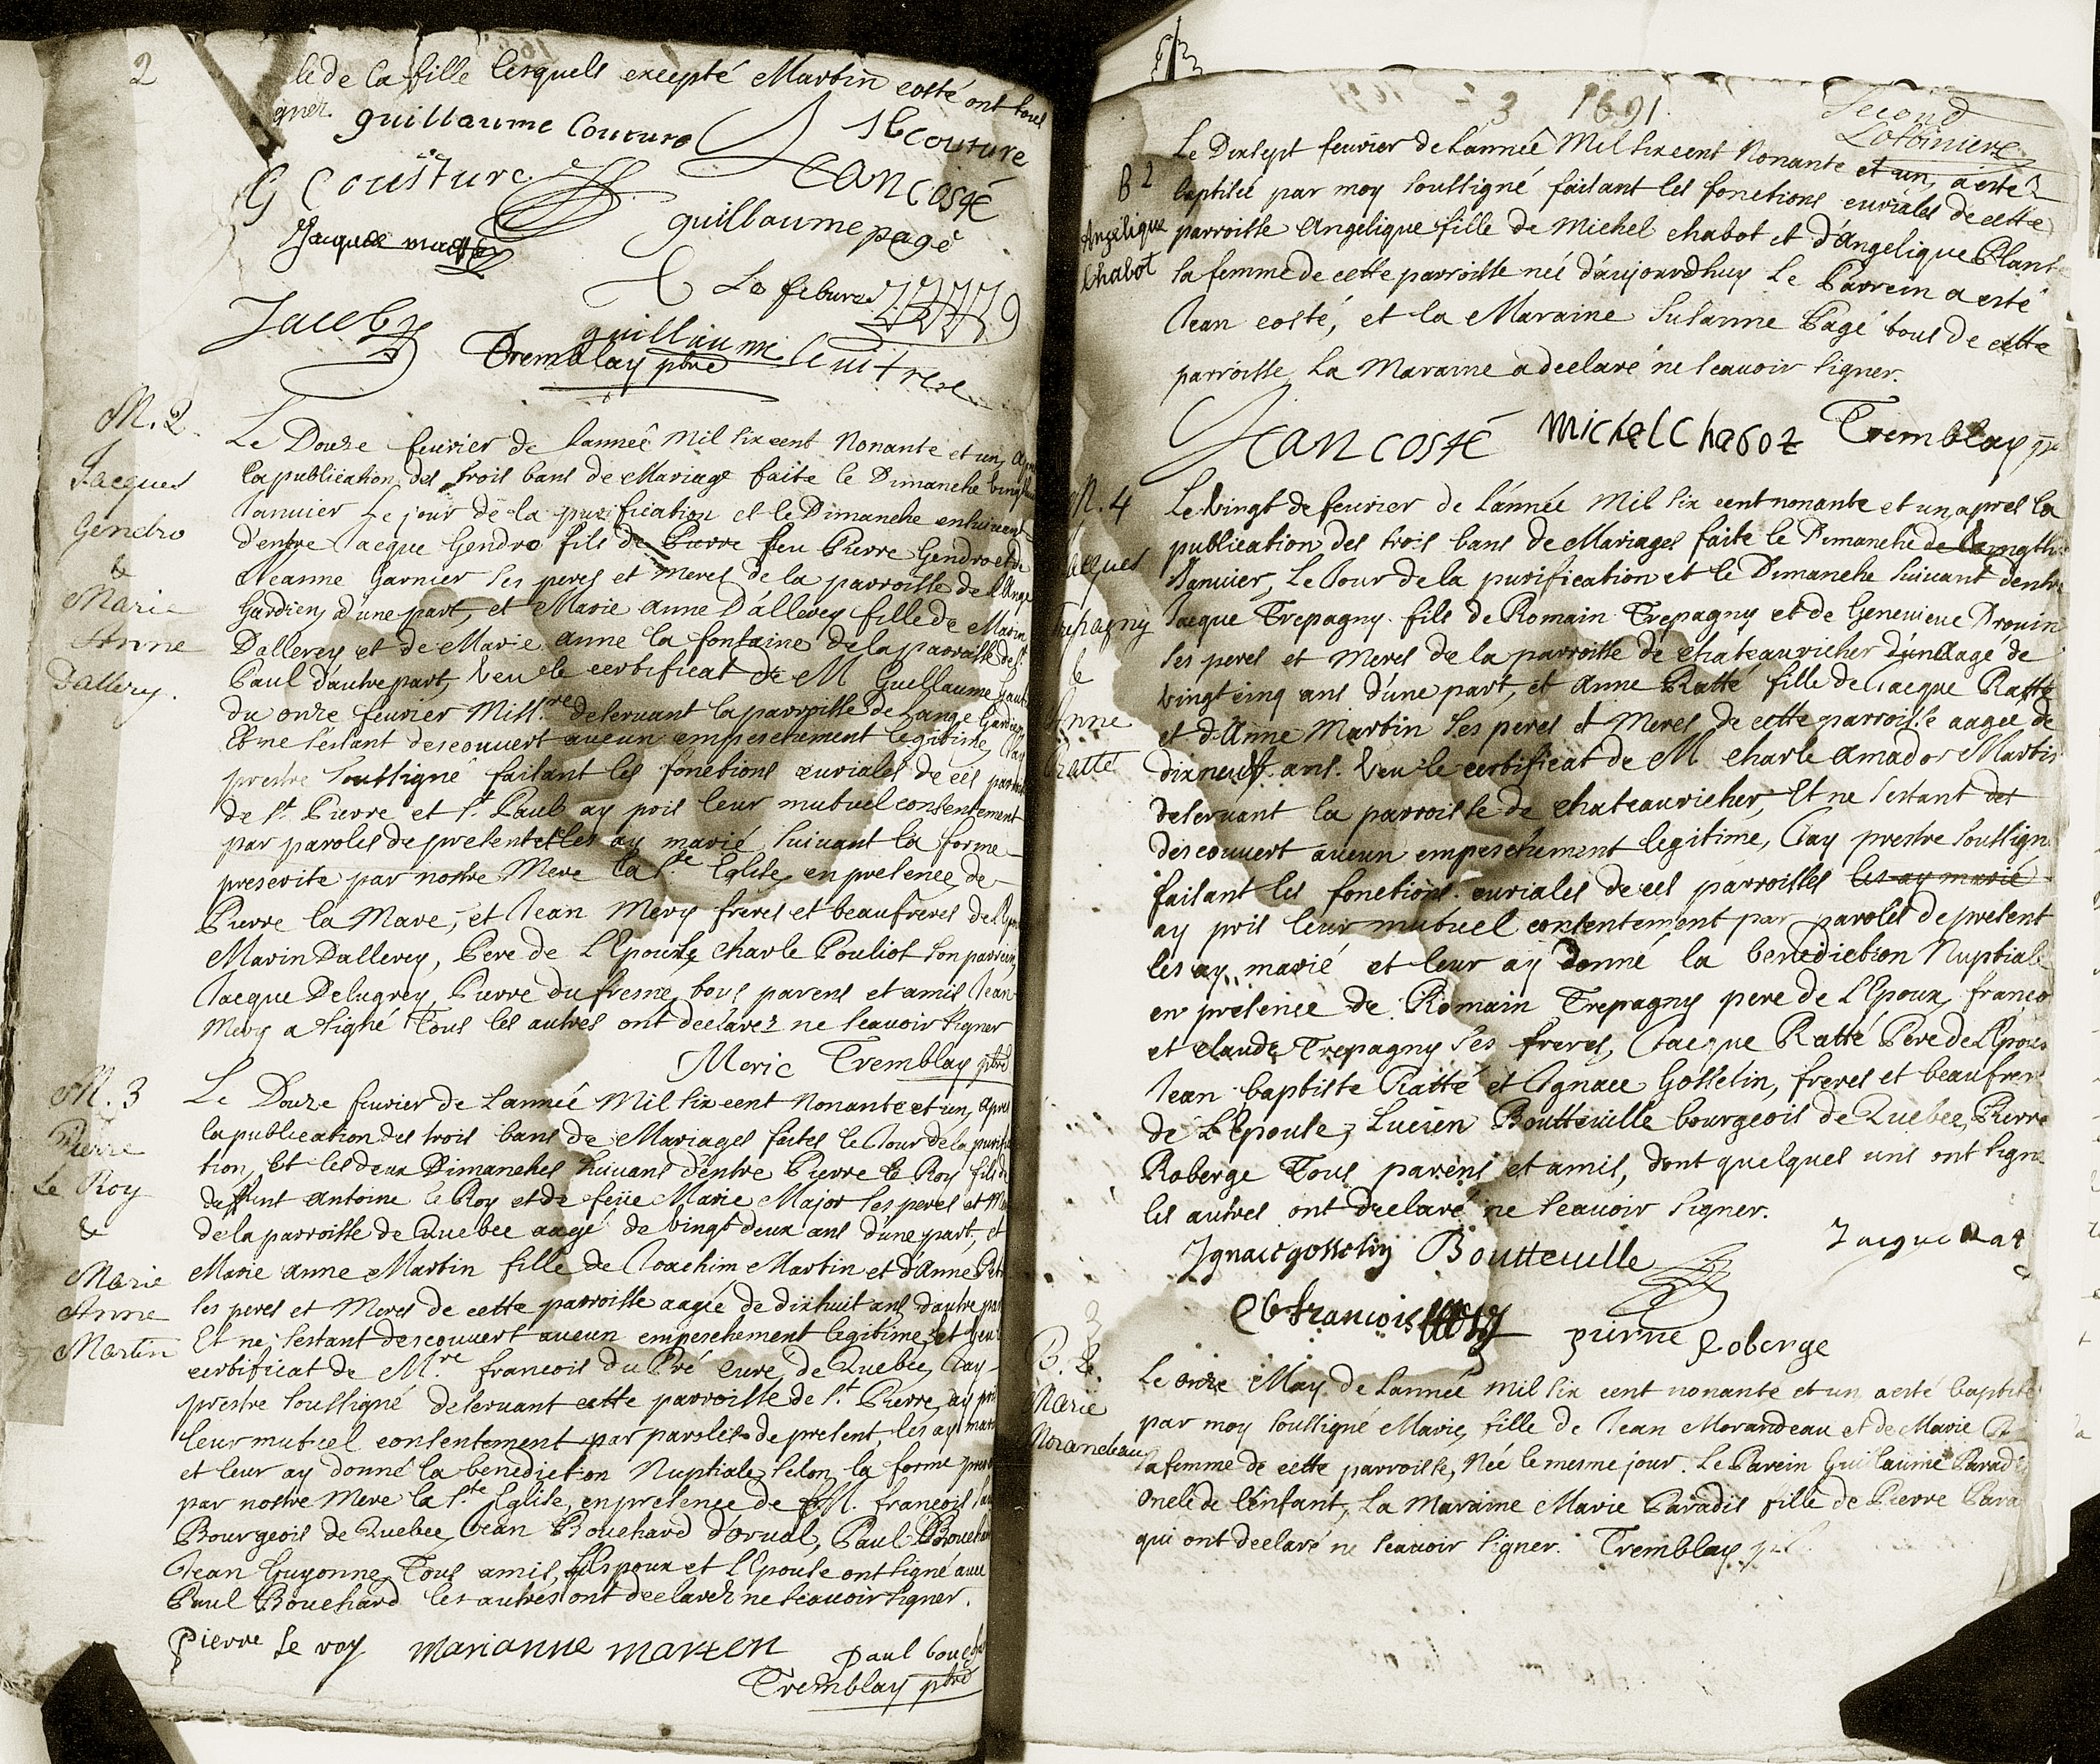 2
le de la fille lesquels excepté Martin costé ont tous
signer.
guillaume Couture
J b couture
G Cousture
Jean Costé
Jacque
guillaume page
Le febure
Jacob
guillaume
Tremblay ptre
M. 2
Jacques
Gendro
&
Marie
Anne
Dallery.
Le Douze feurier de l'année Mil six cent Nonante et un, apres
la publication des trois bans de Mariage faite le Dimanche vingt
Januier Le jour de la purification et le Dimanche ensuivant
d'entre Jacque Gendro fils de Pierre feu Pierre Gendro et de
Jeanne Garnier ses peres et meres de la parroisse de L'Ange
Gardien, d'une part, et Marie anne D'allerey fille de Marin
Dallerey et de Marie anne la fontaine de la parroisse de St
Paul d'autre part, Veu le certificat de M Guellaume Gaut
du onze feurier Miss.re deseruant la parroisse de Lange Gardien
Et ne s'estant descouuert aucun empeschement legitime, J'ay
prestre soussigné faisant les fonctions curiales de ces parroisses
de St. Pierre et St. Paul ay pris leur mutuel consentement
par paroles de present et les ay marié suiuant la forme
prescrite par nostre Mere la Ste. Eglise, en presence de
Pierre la Mare, et Jean Mery freres et beaufreres de l'Epoux
Marin Dallerey, Pere de L'Epouse, Charle Pouliot son parrein
Jacque Delugrey, Pierre du fresne tous parens et amis Jean
Mery a signé Tous les autres ont declarez ne scauoir signer
Meric Tremblay ptre
M. 3
Pierre
Le Roy
&
Marie
Anne
Martin
Le Douze feurier de L'année Mil six cent Nonante et un, apres
la publication des trois bans de Mariages faites le Jour de la purifica
tion, Et les deux Dimanches suiuans d'entre Pierre le Roy fils de
deffunt Antoine le Roy et de feüe Marie Major ses peres et Meres
de la parroisse de Quebec aagé de vingt deux ans d'une part, et
Marie anne Martin fille de Joachim Martin et d'Anne
ses peres et Meres de cette parroisse aagée de dix huit ans d'autre part
Et ne s'estant descouuert aucun empeschement legitime, et veu
certificat de M.re francois du Pré Curé de Quebec, J'ay
prestre soussigné deseruant cette parroisse de St. Pierre, ay pris
leur mutuel consentement par paroles de present, les ay marié
et leur ay donné la benediction Nuptiale selon la forme
par nostre Mere la Ste. Eglise, en presence de M. francois
Bourgeois de Quebec, Jean Bouchard d'orual, Paul Bouchard
Jean Guyonne, Tous amis, L'Espoux et L'Epouse ont signé auec
Paul Bouchard les autres ont declarez ne scauoir signer.
Pierre le roy marianne marten paul bouch
Tremblay ptre
3 1691
Second
Lotbiniere
B 2
Angelique
Chabot
Le Dixsept feurier de L'année Mil six cent Nonante et un, a esté
baptisée par moy soussigné faisant les fonctions curiales de cette
parroisse Angelique fille de Michel chabot et d'Angelique Plante
sa femme de cette parroisse née d'aujourdhuy Le Parrein a esté
Jean costé, et la Maraine Susanne Pagé tous de cette
parroisse, La Maraine a declaré ne scauoir signer.
Jean costé michel Chabot Tremblay ptre
M. 4
Jacques
Trepagny
&
Anne
Ratté
Le Vingt de feurier de L'année Mil six cent nonante et un, apres la
publication des trois bans de Mariages faite le Dimanche de vingt
Januier, Le Jour de la purification et le Dimanche suiuant dentre
Jacque Trepagny fils de Romain Trepagny et de Geneuieue Drouin
ses peres et Meres de la parroisse de chateauricher d'un aage de
vingt cinq ans d'une part, et Anne Ratté fille de Jacque Ratté
et d'Anne Martin ses peres et Meres de cette parroisse aagée de
dixneuff ans. Veu le certificat de M charle Amador Martin
deseruant la parroisse de chateauricher, Et ne s'estant des
descouuert aucun empeschement legitime, J'ay prestre soussigné
faisant les fonctions curiales de ces parroisses les ay marié
ay pris leur mutuel consentement par paroles de present
les ay marié et leur ay donné la benediction Nuptiale
en presence de Romain Trepagny pere de L'Epoux, francois
et claude Trepagny ses freres, Jacque Ratté Pere de L'Epouse
Jean baptiste Ratté et Ignace Gosselin, freres et beaufreres
de L'Epouse, Lucien Boutteuille bourgeois de Quebec, Pierre
Roberge Tous parens et amis, dont quelques uns ont signé
les autres ont declaré ne scauoir signer.
Ignace gosselin Boutteuille Jacque Rat
francois
pierre Roberge
B. 3
Marie
Morandeau
Le onze May de L'année Mil six cent nonante et un a esté baptisée
par moy soussigné Marie, fille de Jean Morandeau et de Marie
sa femme de cette parroisse, Née le mesme jour. Le Parein Guillaume Paradis
Oncle de l'enfant, La Maraine Marie Paradis fille de Pierre Para
qui ont declaré ne scauoir signer. Tremblay ptre